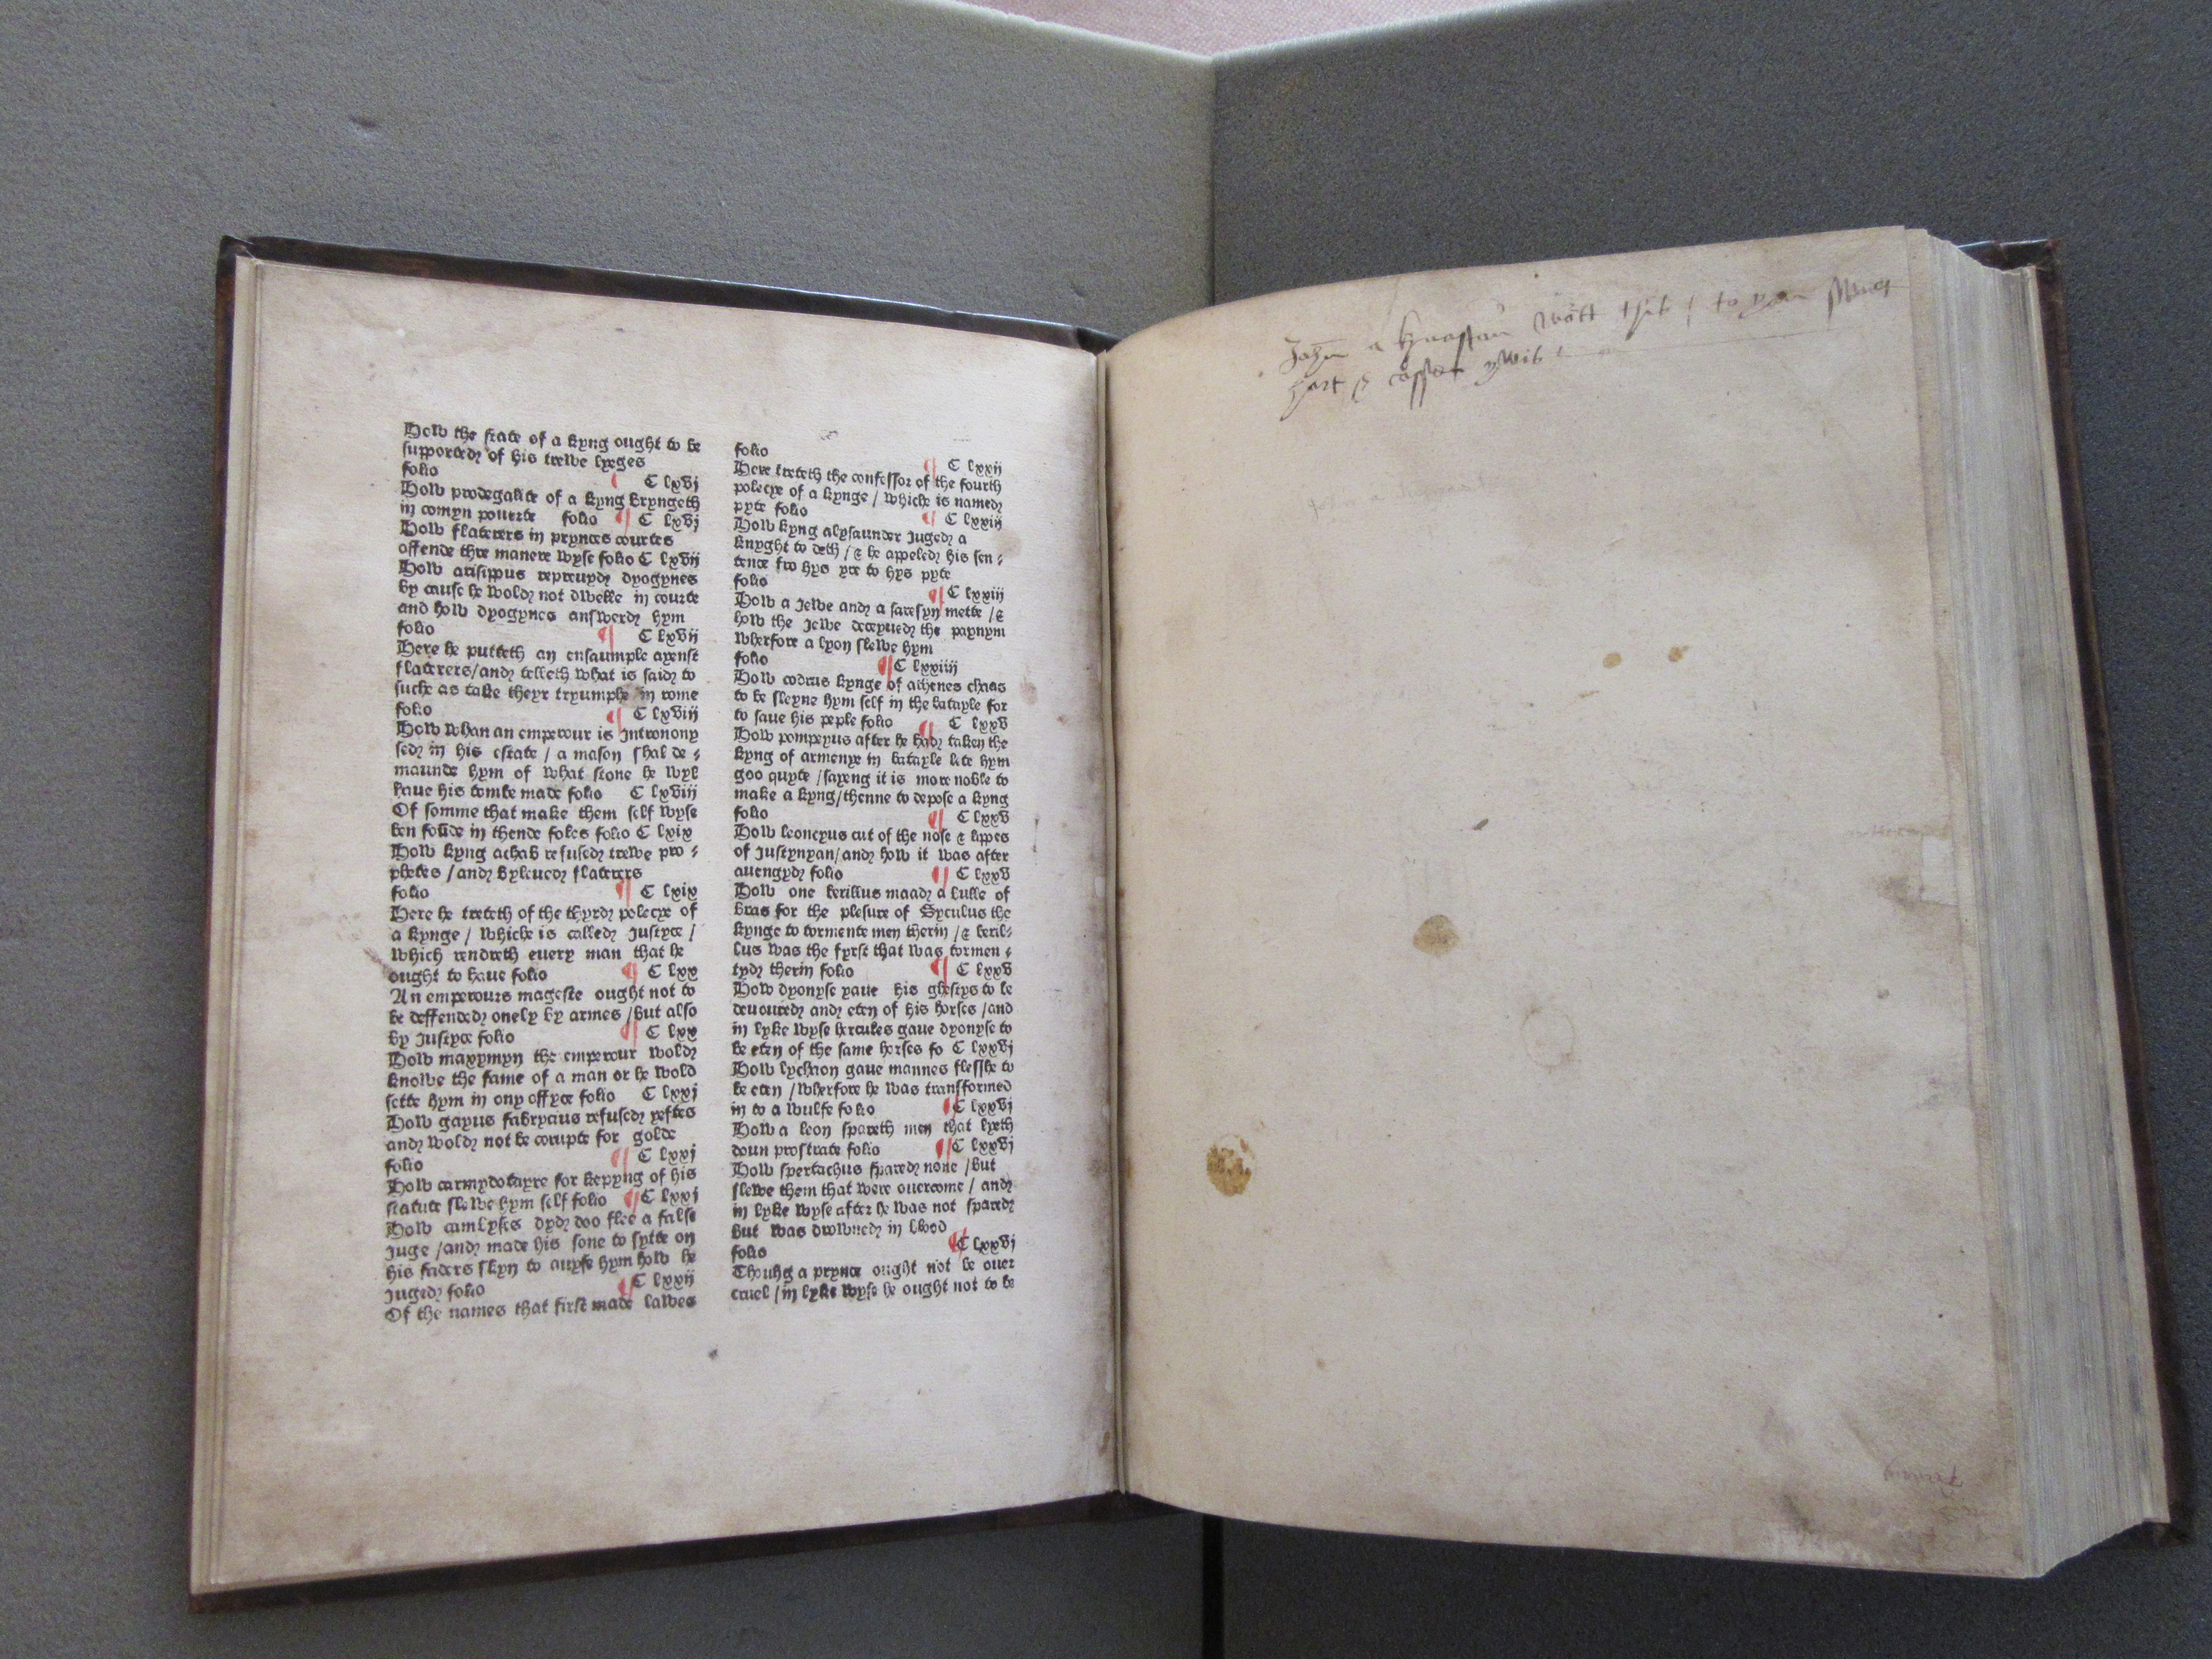 How the state of a kyng ought to be
supported of his trewe lyeges
folio
C lxvj
How prodegalite of a kyng bryngeth
in comyn pouerte folio ¶ C lxvj
How flaterers in prynces courtes
offende thre manere wyse folio C lxvij
How arisippus repreuyd dyogynes
by cause he wold not dwelle in courte
and how dyogynes answerd hym
folio ¶ C lxvij
Here he putteth an ensaumple ayenst
flaterers/and telleth what is said to
suche as take theyr tryumphe in rome
folio ¶ C lxviij
How whan an emperour is Intronony
sed in his estate / a mason shal de ⸗
maunde hym of what stone he wyl
haue his tombe made folio C lxviij
Of somme that make them self wyse
ben foūde in thende foles folio C lxix
How kyng achab refused trewe pro ⸗
phetes /and byleued flaterers
folio ¶ C lxix
Here he treteth of the thyrd polecye of
a kynge / whiche is called Justyce /
which rendreth euery man that he
ought to haue folio ¶ C lxx
An emperours mageste ought not to
be deffended onely by armes /but also
by Justyce folio ¶ C lxx
How maxymyn the emperour wold
knowe the fame of a man or he wold
sette hym in ony offyce folio C lxxj
How gayus fabrycius refused yeftes
and wold not be corupte for golde
folio ¶ C lxxj
How carmydotayre for kepyng of his
statute slewe hym self folio ¶ C lxxj
How cambyses dyd doo flee a false
Juge /and made his sone to sytte on
his faders skyn to auyse hym how he
Juged folio ¶ C lxxij
Of the names that first made lawes
folio
¶ C lxxij
Here treteth the confessor of the fourth
polecye of a kynge / whiche is named
pyte folio ¶ C lxxiij
How kyng alysaunder Juged a
knyght to deth /& he appeled his sen ⸗
tence fro hys yre to hys pyte
folio
¶ C lxxiij
How a Jewe and a saresyn mette /&
how the Jewe deceyued the paynym
wherfore a lyon slewe hym
folio ¶ C lxxiiij
How codrus kynge of athenes chaas
to be sleyne hym self in the bataylle for
to saue his peple folio ¶ C lxxv
How pompeyus after he had taken the
kyng of armenye in bataylle lete hym
goo quyte /sayeng it is more noble to
make a kyng/thenne to depose a kyng
folio ¶ C lxxv
How leoncyus cut of the nose & lippes
of Justynyan/and how it was after
auengyd folio ¶ C lxxv
How one berillus maad a bulle of
bras for the plesure of Syculus the
kynge to tormente men therin /& beril⸗
lus was the fyrst that was tormen ⸗
tyd therin folio ¶ C lxxv
How dyonyse yaue his ghestys to be
deuoured and eten of his horses /and
in lyke wyse hercules gaue dyonyse to
be eten of the same horses fo C lxxvj
How lychaon gaue mannes flesshe to
be eten /wherfore he was transformed
in to a wulfe folio ¶ C lxxvj
How a leon spareth men that lyeth
doun prostrate folio ¶ C lxxvj
How spertachus spared none /but
slewe them that were ouercome / and
in lyke wyse after he was not spared
but was drowned in blood
folio ¶ C lxxvj
Thouhg a prynce ought not be ouer
cruel /in lyke wyse he ought not to be
John a
hart &